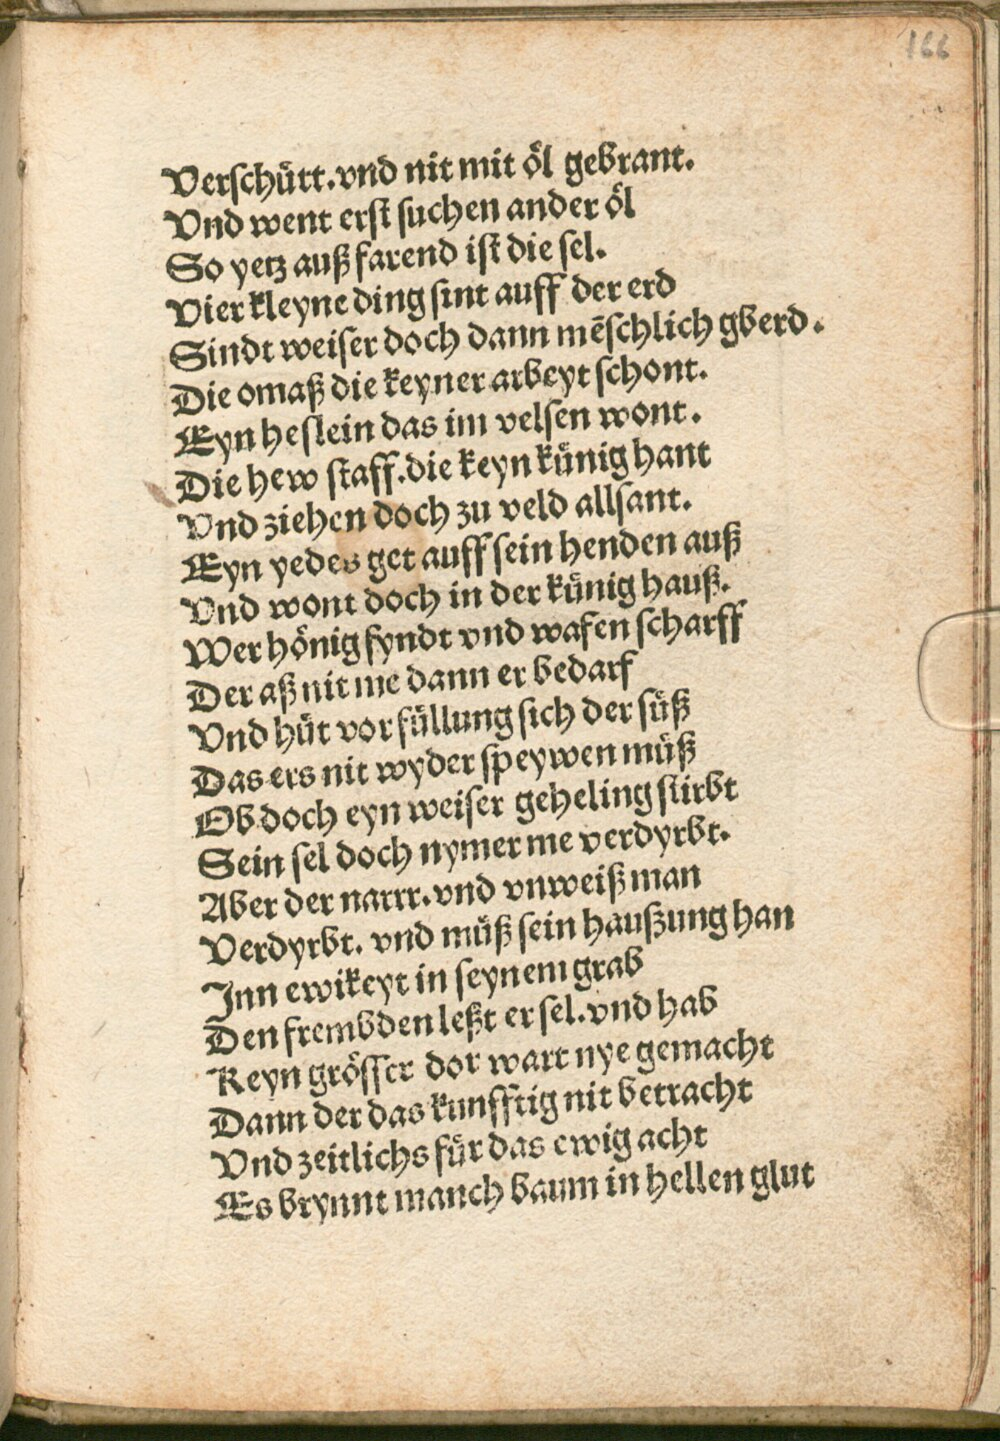 166
Verschütt.vnd nit mit öl gebrant.
Vnd went erst suchen ander öl
So yetz auß farend ist die sel.
Vier kleyne ding sint auff der erd
Sindt weiser doch dann mēschlich gberd.
Die omaß die keyner arbeyt schont.
Eyn heslein das im velsen wont.
Die hew staff.die keyn künig hant
Vnd ziehen doch zu veld allsant.
Eyn yedes get auff sein henden auß
Vnd wont doch in der künig hauß.
Wer hönig fyndt vnd wafen scharff
Der aß nit me dann er bedarf
Vnd hüt vor füllung sich der süß
Das ers nit wyder speywen müß
Ob doch eyn weiser geheling stirbt
Sein sel doch nymer me verdyrbt.
Aber der narrr.vnd vnweiß man
Verdyrbt. vnd müß sein haußung han
Inn ewikeyt in seynem grab
Den frembden leßt er sel.vnd hab
Keyn grösser dor wart nye gemacht
Dann der das kunfftig nit betracht
Vnd zeitlichs für das ewig acht
Es brynnt manch baum in hellen glut